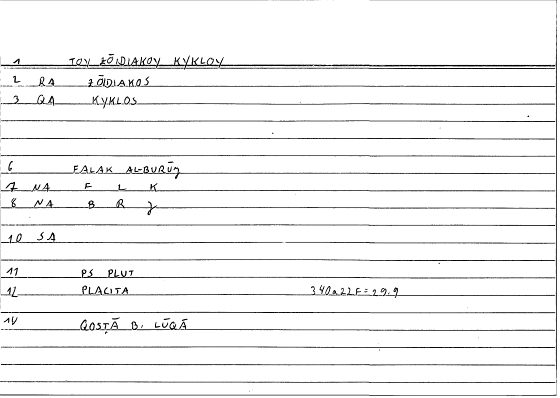 1 TOY ZŌIDIAKOY KYKLOY
2 RA ZŌIDIAKOS
3 QA KYKLOS
6 FALAK AL-BURŪǧ
7 NA F L K
8 NA B R ǧ
10 SA
11 PS PLUT
12 PLACITA 340a22F=29.9
14 QOSṬĀ B. LŪQĀ